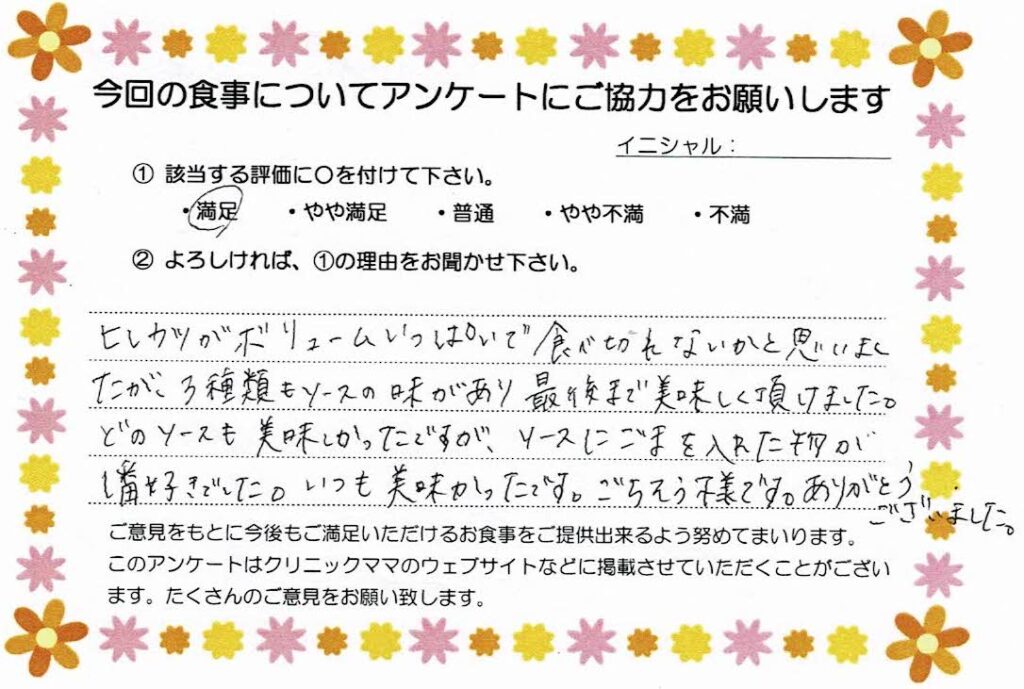 今回の食事についてアンケートにご協力をお願いします
イニシャル:
① 該当する評価に○を付けて下さい。
・満足 ・やや満足 ・普通 ・やや不満 ・不満
② よろしければ、①の理由をお聞かせ下さい。
ヒレカツがボリュームいっぱいで食べ切れないかと思いまし
たが、3種類もソースの味があり最後まで美味しく頂けました。
どのソースも美味しかったですが、ソースにごまを入れた物が
1番好きでした。いつも美味かったです。ごちそう様です。ありがとう
ございました。
ご意見をもとに今後もご満足いただけるお食事をご提供出来るよう努めてまいります。
このアンケートはクリニックママのウェブサイトなどに掲載させていただくことがござい
ます。たくさんのご意見をお願い致します。